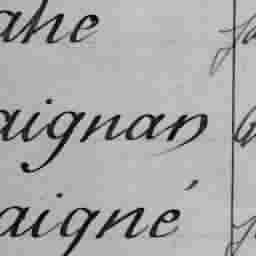 ahe
aignan
aigné